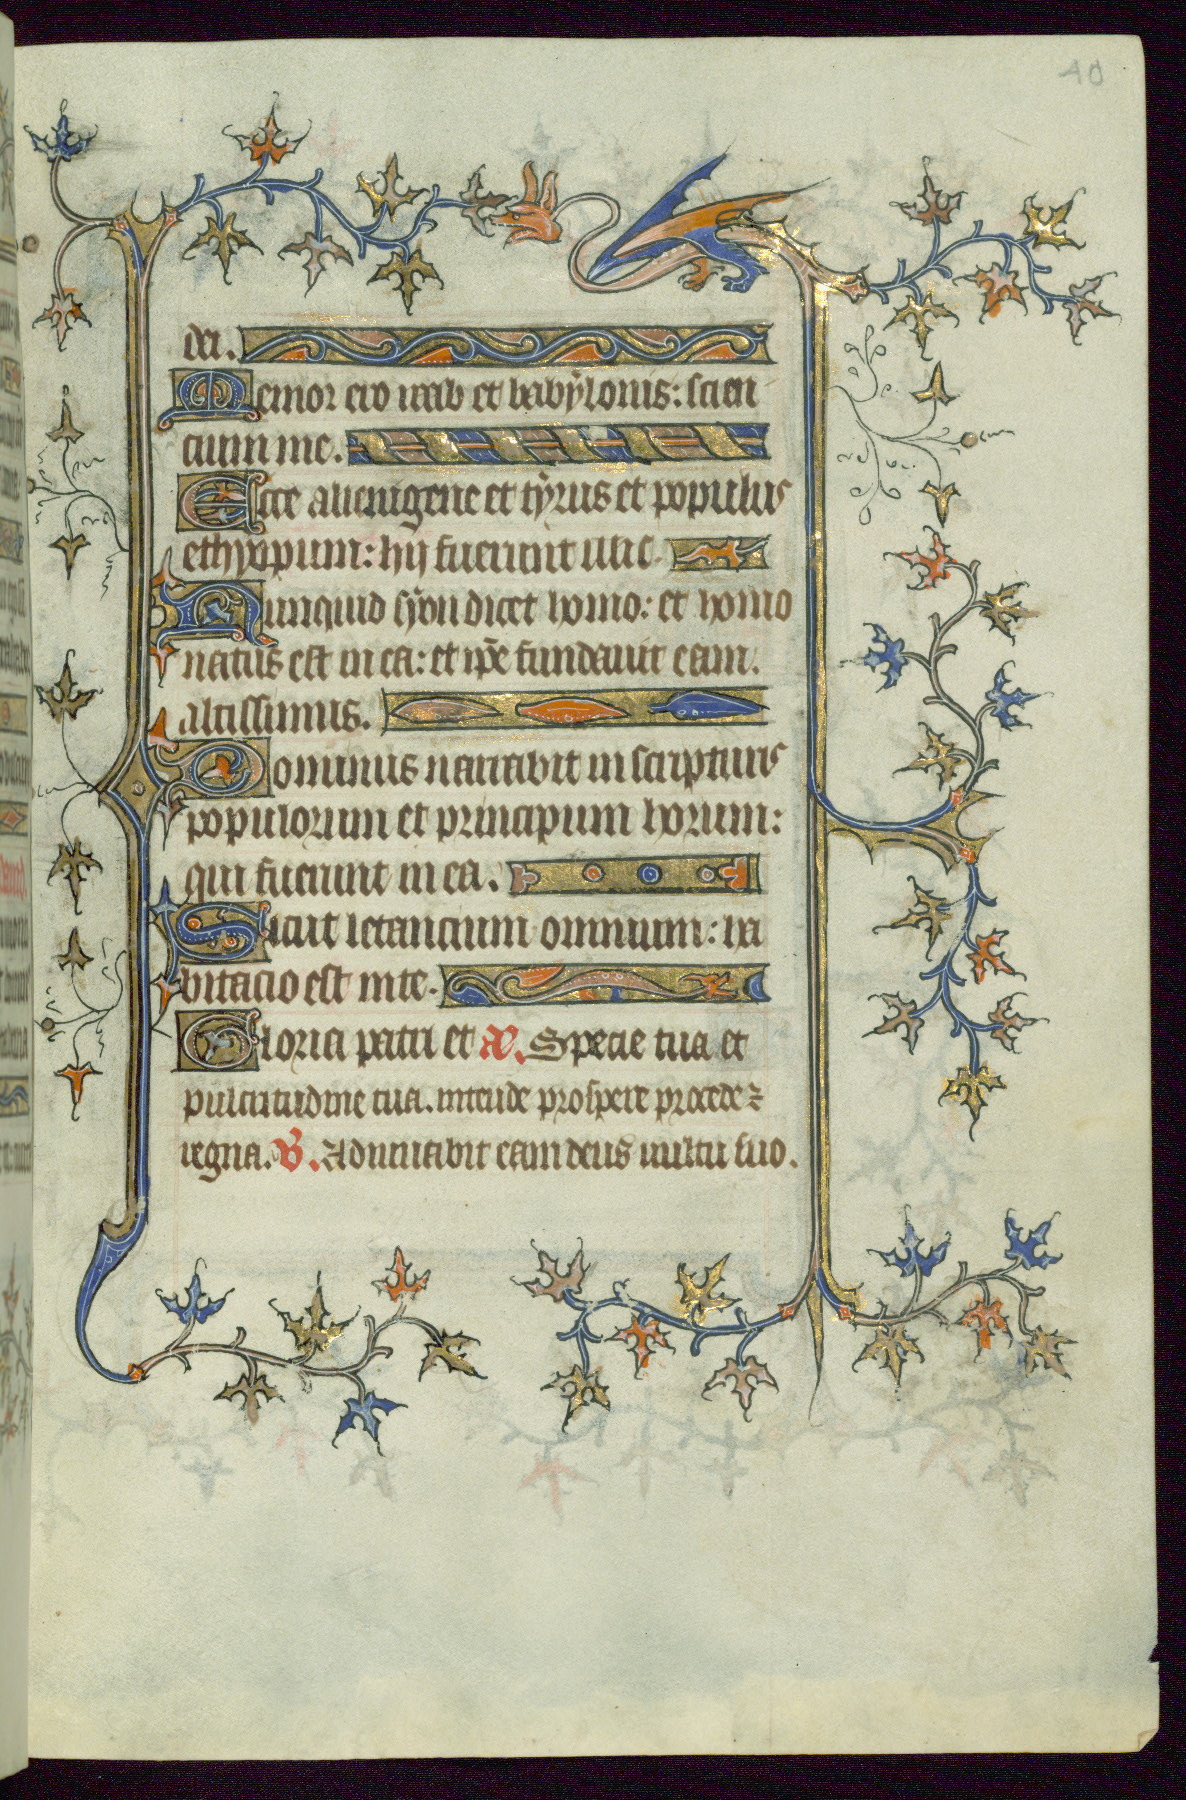 40
dei.
Memor ero raab et babẏlonis: scien
cium me.
Ecce alienigene et tẏrus et populus
ethyopum: hij fuerunt illic.
Nunquid sẏon dicet homo: et homo
natus est in ea: et ip̄e fundauit eam.
altissimus.
Dominus narrabit in scripturis
populorum et principum horum:
qui fuerunt in ea.
Sicut letancium omnium: ha
bitacio est in te.
Gloria patri et Æ. Specie tua et
pulcritudine tua. intende prospere procede ⁊
regna. V. Adiuuabit eam deus uultu suo.